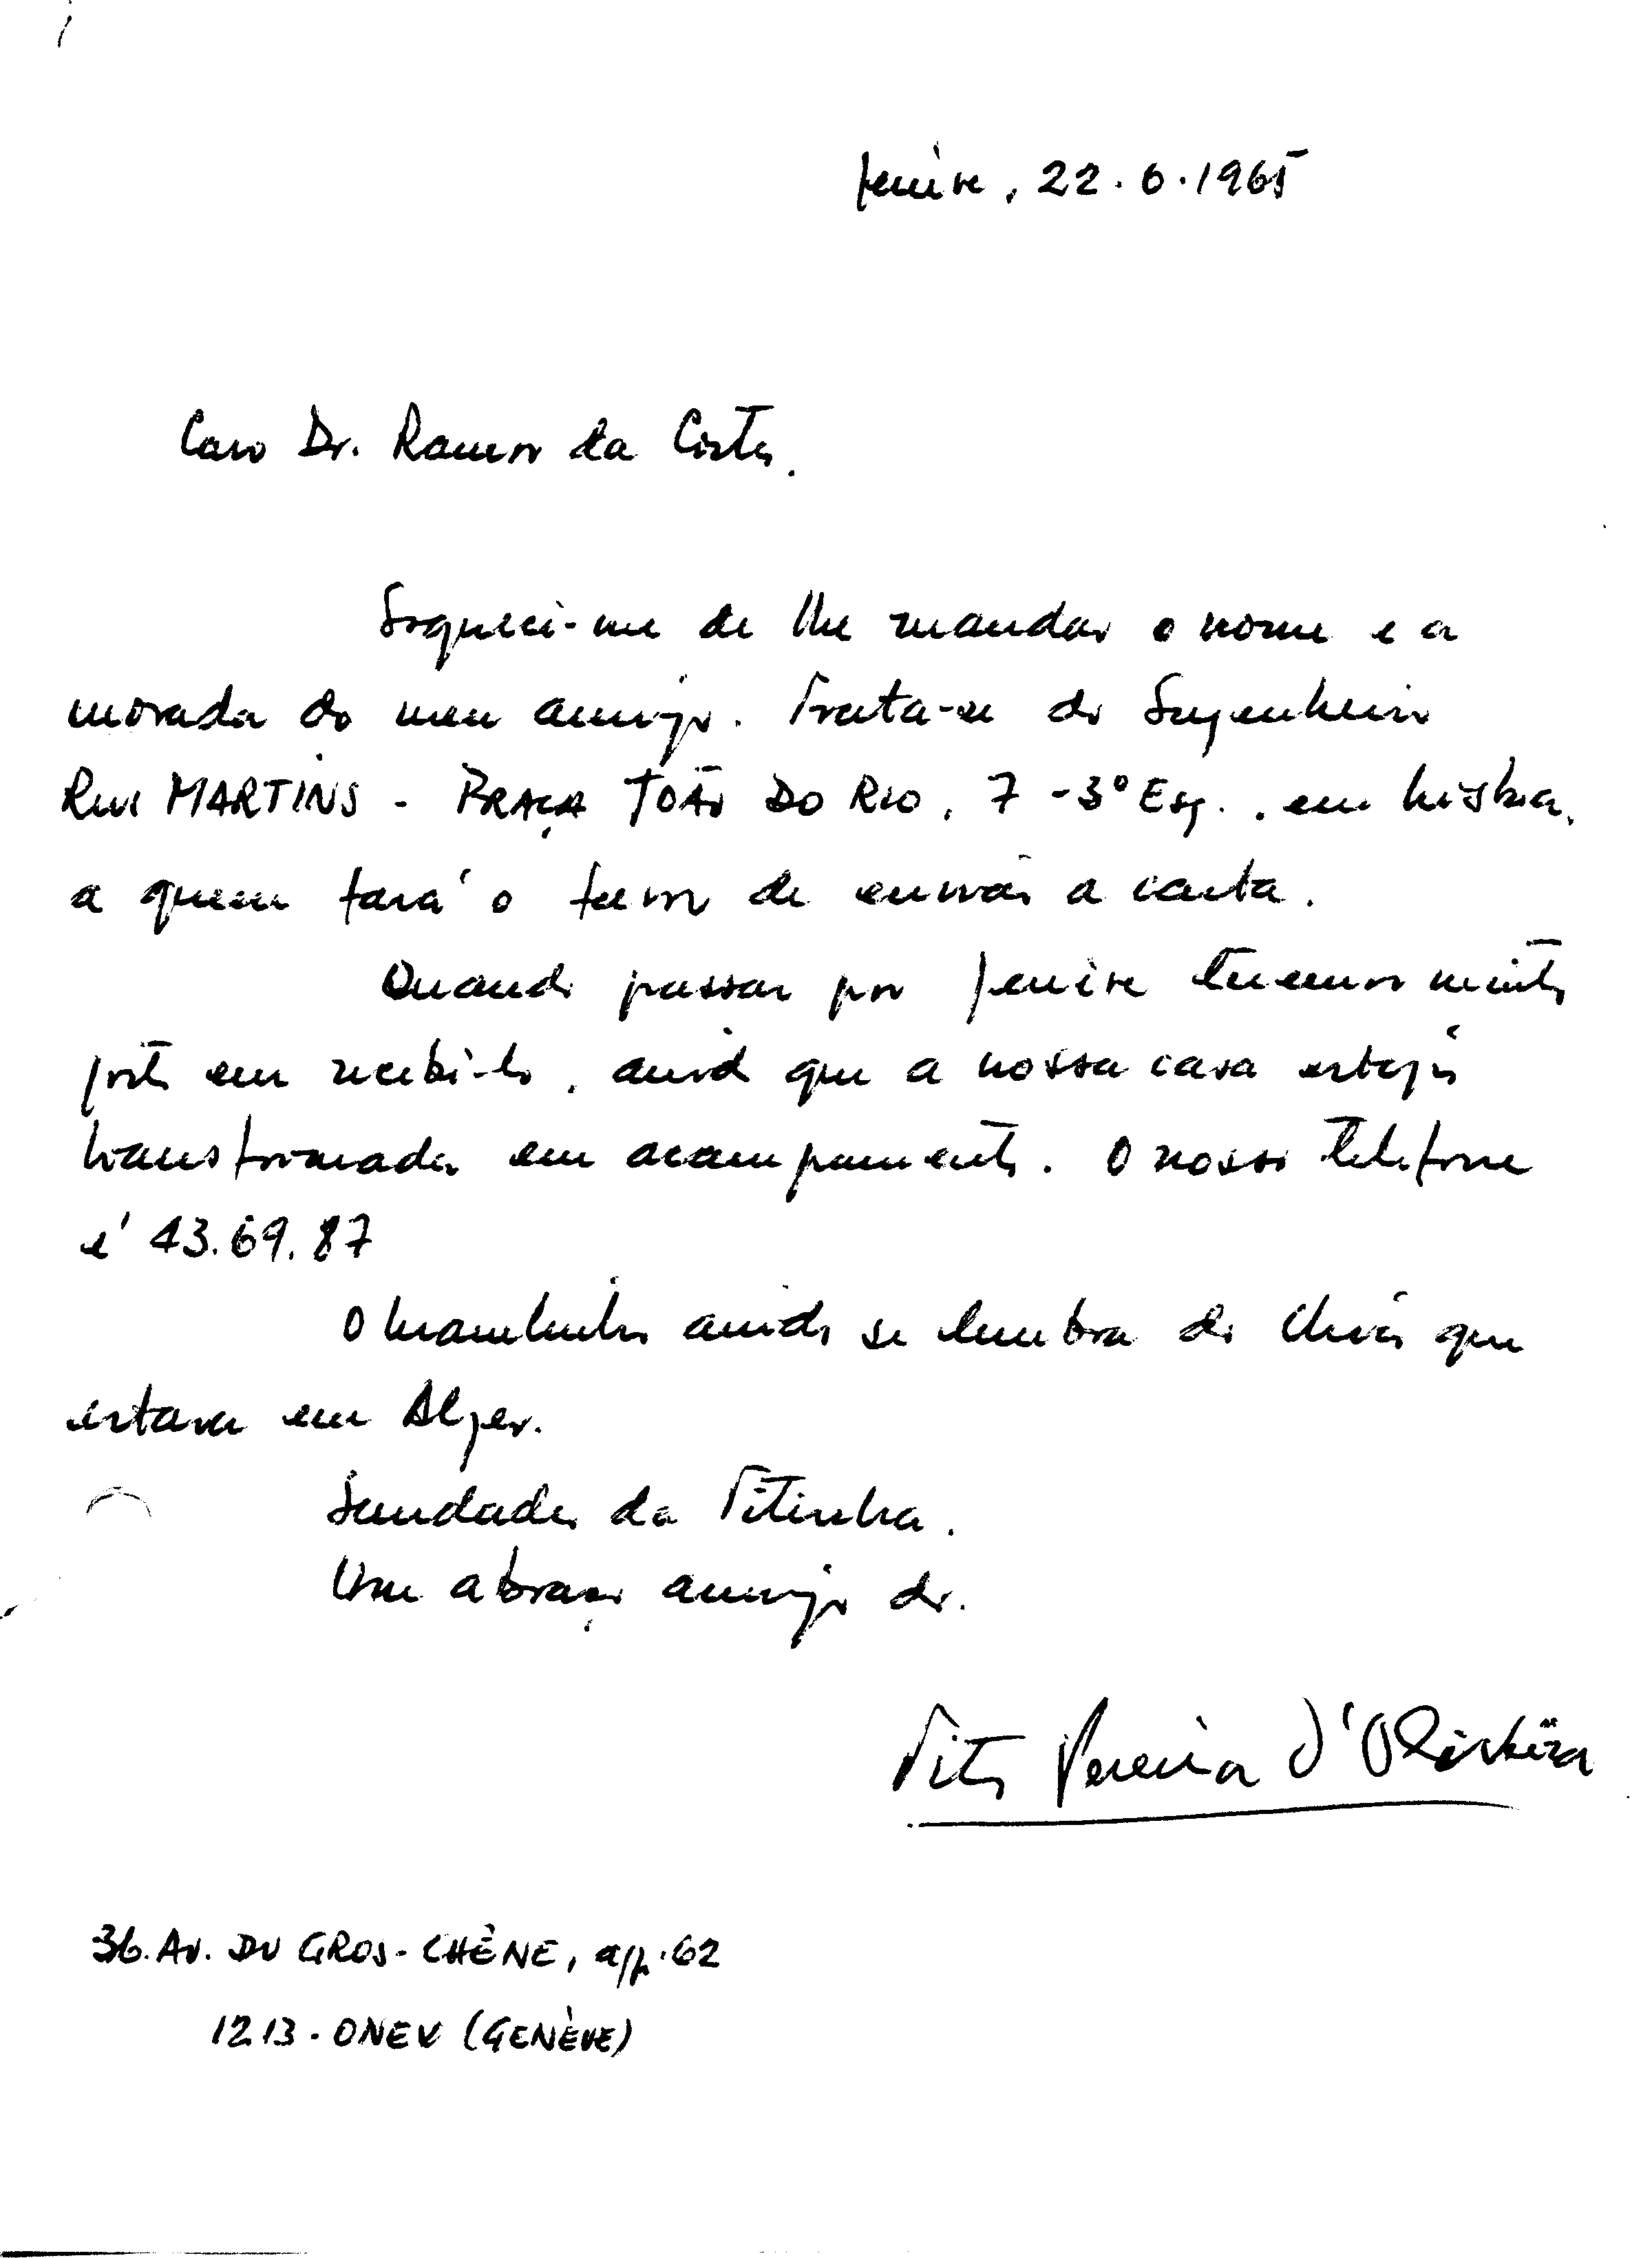 Genève, 22.6.1965
Caro Dr. Ramos da Costa,
Esqueci-me de lhe mandar o nome e a
morada do meu amigo. Trata-se do Engenheiro
Rui MARTINS - PRAÇA JOÃO DO RIO, 7 - 3º Esq., em Lisboa,
a quem fará o favor de enviar a carta.
Quando passar por Genève teremos muito
gosto em recebê-lo, ainda que a nossa casa esteja
transformada em acampamento. O nosso telefone
é 43.69.87
O ainda se lembra do que
estava em Alger.
Saudades da Titinha.
Um abraço amigo do.
Tito Pereira d'Oliveira
36. AV. DU GROS-CHÊNE, ap. 62
1213 - ONEX (GENÈVE)